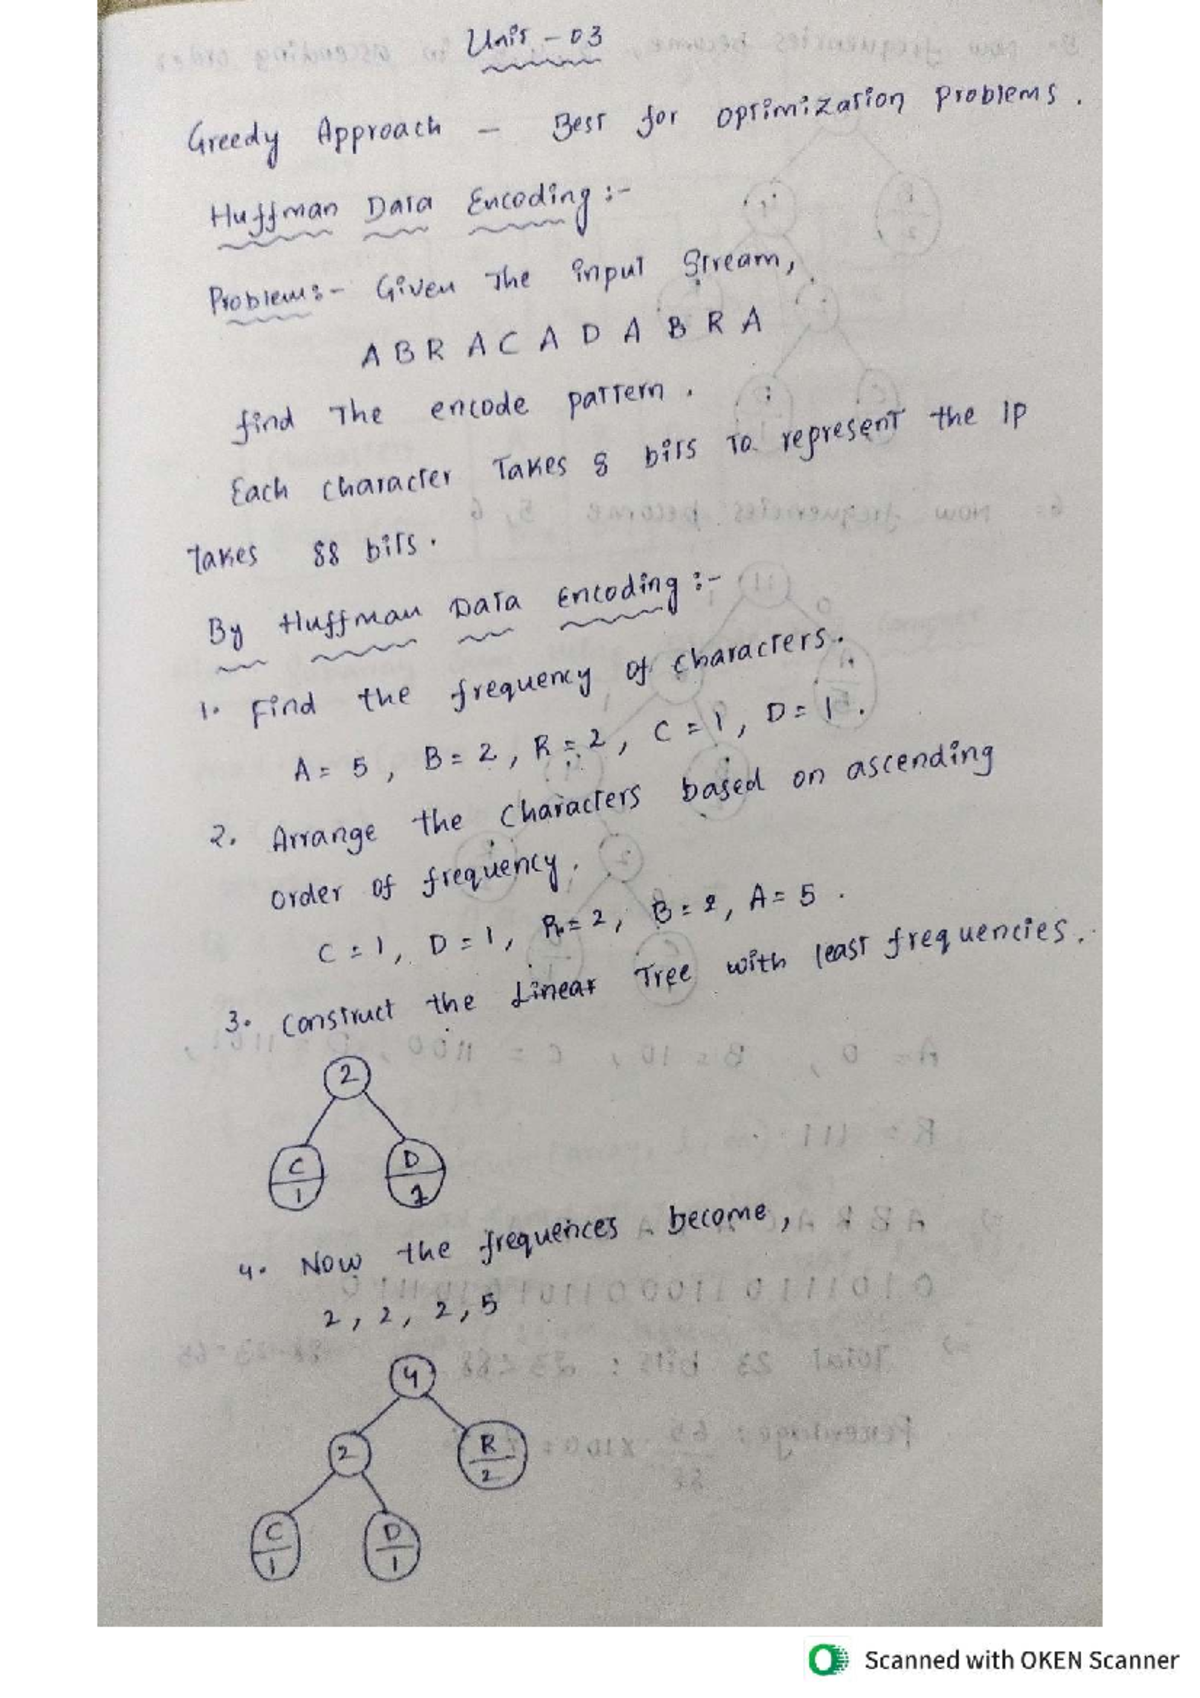 Unit - 03
Greedy Approach - Best for optimization problems.
Huffman Data Encoding :-
Problem:- Given the input Stream,
A B R A C A D A B R A
find the encode pattern.
Each character takes 8 bits to represent the IP
takes 88 bits.
By Huffman Data Encoding :-
1. Find the frequency of characters.
A = 5, B = 2, R = 2, C = 1, D = 1.
2. Arrange the characters based on ascending
order of frequency.
C = 1, D = 1, R = 2, B = 2, A = 5.
3. Construct the Linear Tree with least frequencies.
2
C D
1 1
4. Now the frequences become,
2, 2, 2, 5
4
2 R
2
C D
1 1
Scanned with OKEN Scanner